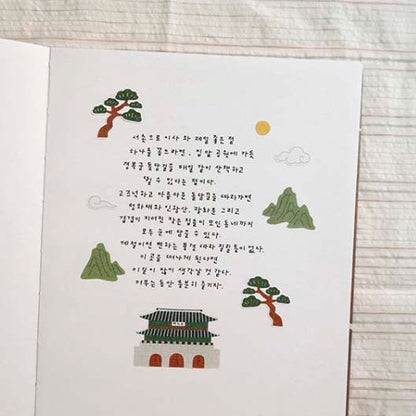 서촌으로 이사 와 제일 좋은 점
하나를 꼽으라면, 집 앞 공원에 가듯
경복궁 돌담길을 매일 같이 산책하고
할 수 있다는 점이다.
고즈넉하고 아름다운 돌담길을 따라가면
청와대와 인왕산, 광화문 그리고
겹겹이 지어진 작은 집들이 모인 동네까지
모두 눈에 담을 수 있다.
계절이면 변하는 풍경 따라 걸음이 없다.
이 곳을 떠나게 된다면
이 길이 많이 생각날 것 같다.
머무는 동안 충분히 즐기자.